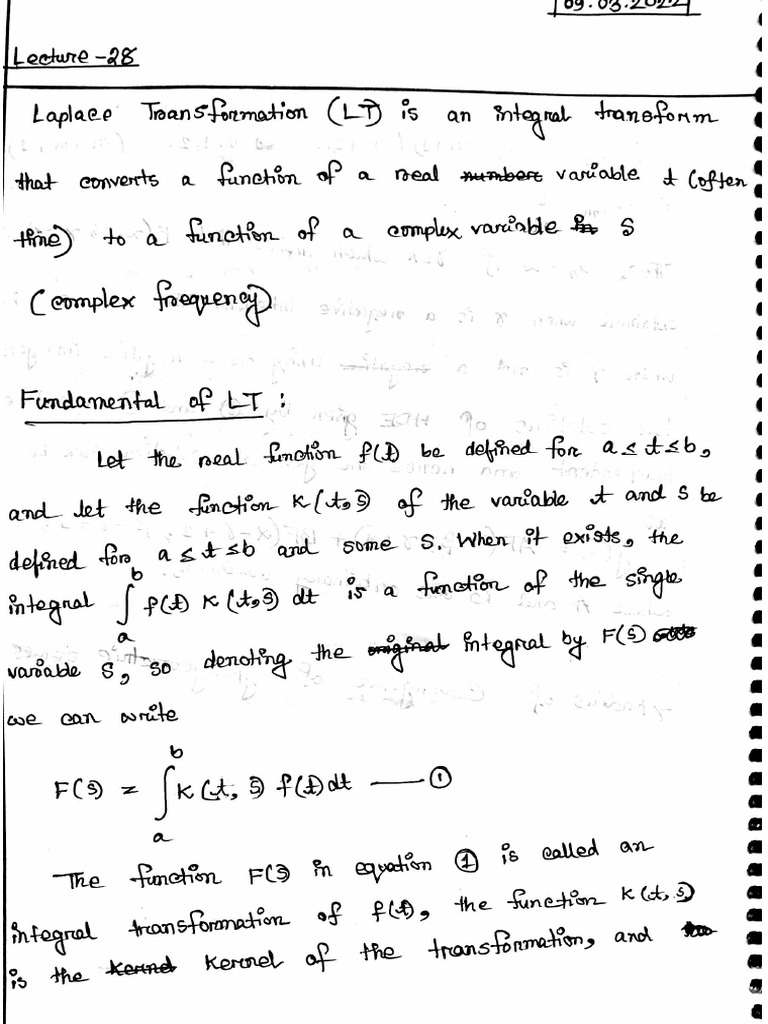 09.03.2022
Lecture-28
Laplace Transformation (LT) is an integral transform
that converts a function of a real numbers variable t (often
time) to a function of a complex variable in S
(complex frequency).
Fundamental of LT :
Let the real function f(t) be defined for a ≤ t ≤ b,
and let the function K(t,s) of the variable t and s be
defined for a ≤ t ≤ b and some S. When it exists, the
integral ∫_a^b f(t) K(t,s) dt is a function of the single
variable S, so denoting the original integral by F(s)
we can write
F(s) = ∫_a^b K(t, s) f(t) dt —— ①
The function F(s) in equation ① is called an
integral transformation of f(t), the function K(t,s)
is the kernel kernel of the transformation, and